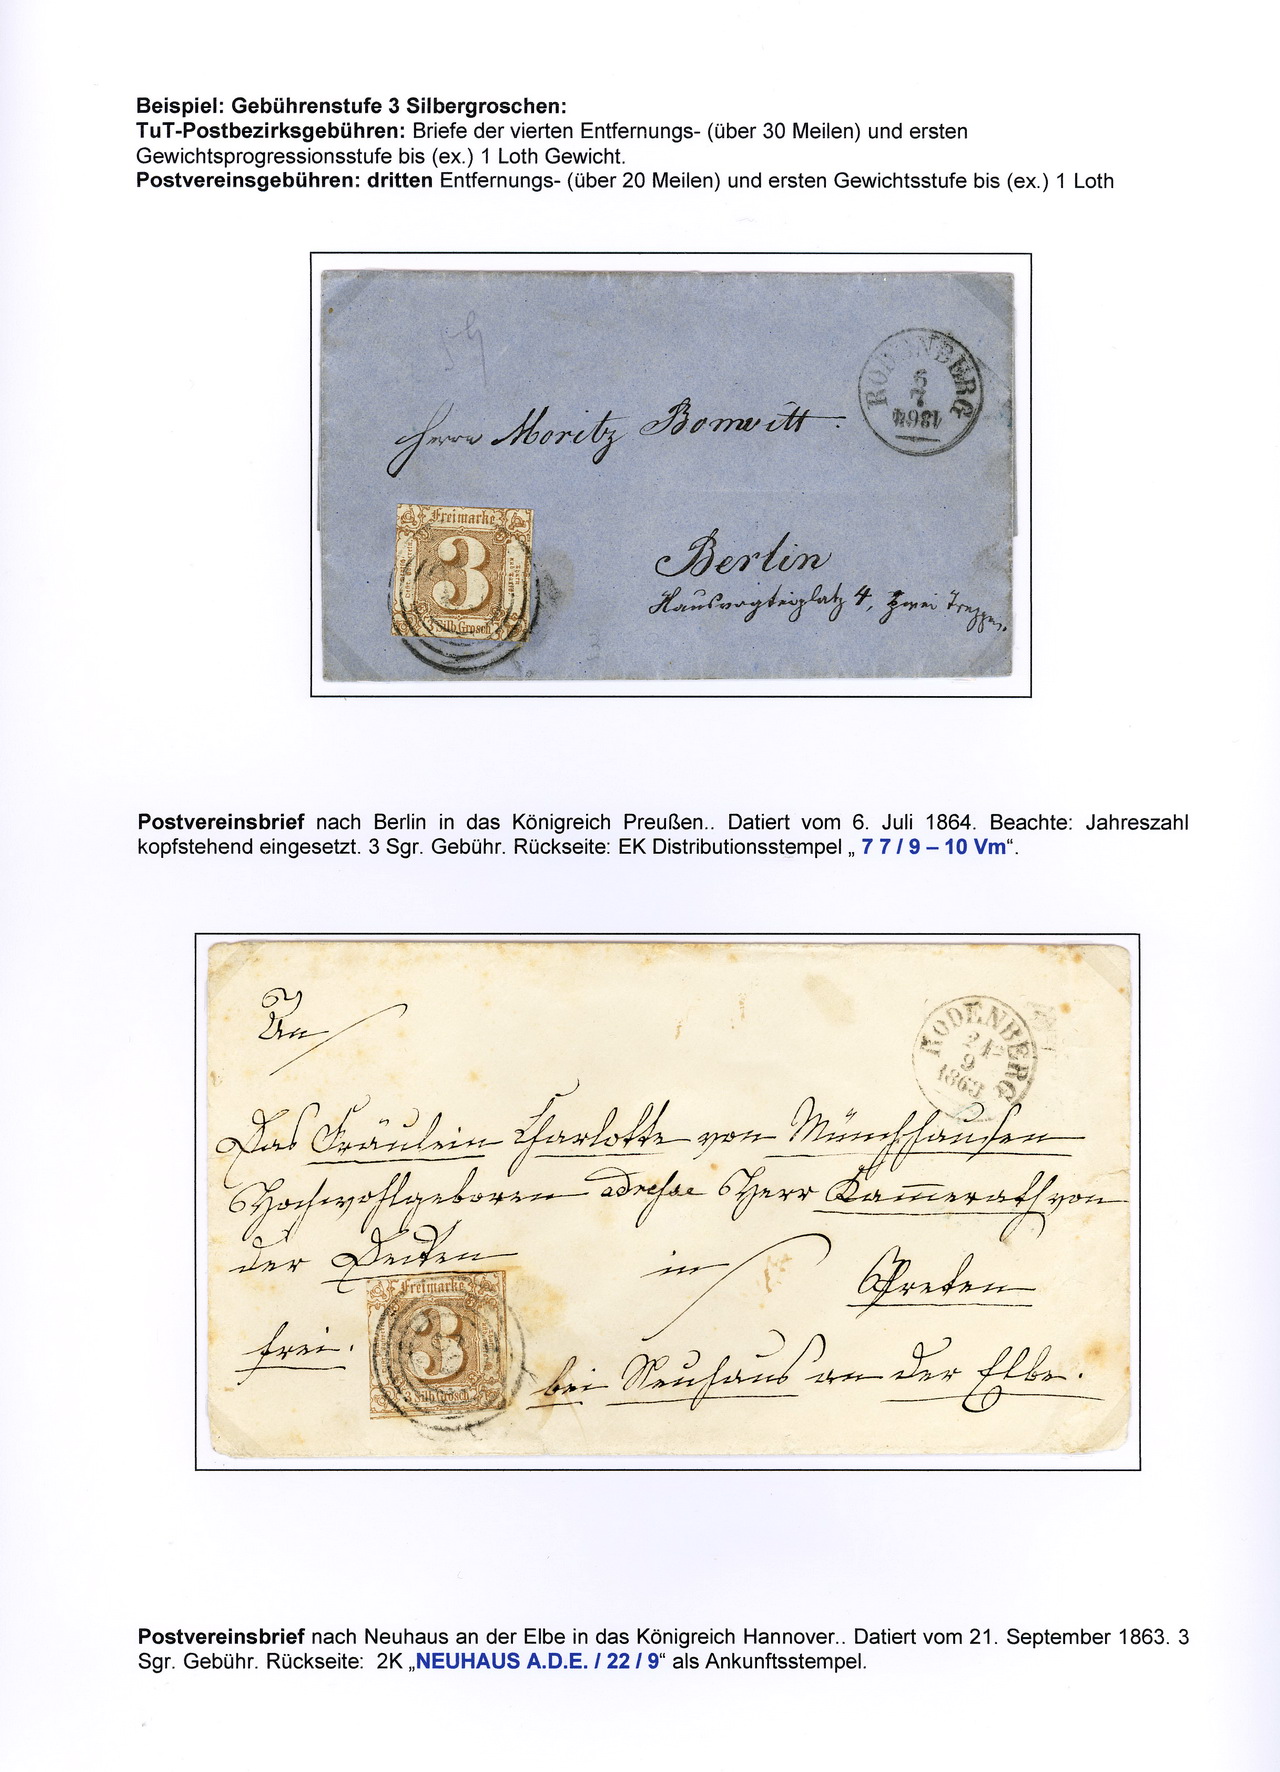 Beispiel: Gebührenstufe 3 Silbergroschen:
TuT-Postbezirksgebühren: Briefe der vierten Entfernungs- (über 30 Meilen) und ersten
Gewichtsprogressionsstufe bis (ex.) 1 Loth Gewicht.
Postvereinsgebühren: dritten Entfernungs- (über 20 Meilen) und ersten Gewichtsstufe bis (ex.) 1 Loth
RODENBERG
7
1864
Herrn Moritz Bonwitt
Freimarke
3
3 Silb.Grosch.
Berlin
Hausvogteiplatz 4, zwei Treppen.
Postvereinsbrief nach Berlin in das Königreich Preußen.. Datiert vom 6. Juli 1864. Beachte: Jahreszahl
kopfstehend eingesetzt. 3 Sgr. Gebühr. Rückseite: EK Distributionsstempel „ 7 7 / 9 – 10 Vm“.
RODENBERG
9
1863
An
Das Fräulein Charlotte von Münchhausen
Hochwohlgeboren adresse Herr Kammerath von
der Decken in Preten
Freimarke
3
3 Silb.Grosch.
frei.
bei Neuhaus an der Elbe.
Postvereinsbrief nach Neuhaus an der Elbe in das Königreich Hannover.. Datiert vom 21. September 1863. 3
Sgr. Gebühr. Rückseite: 2K „NEUHAUS A.D.E. / 22 / 9“ als Ankunftsstempel.